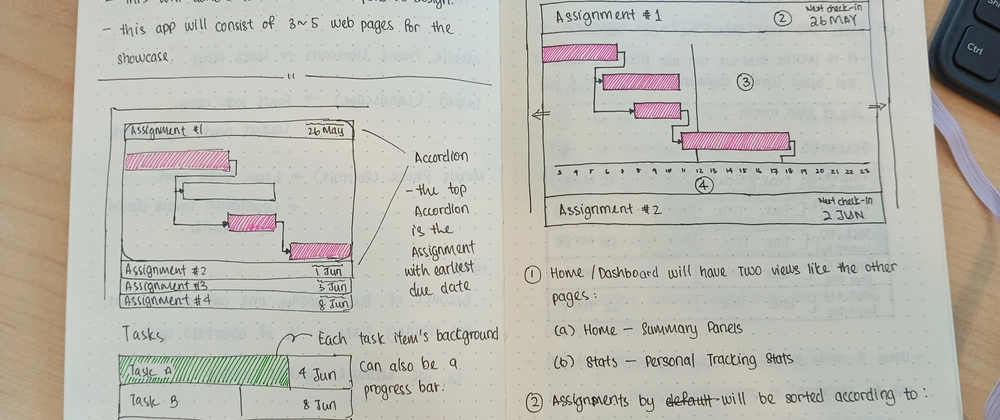 - this app will consist of 3~5 web pages for the
showcase.
Assignment #1 26 May
Assignment #2 1 Jun
Assignment #3 3 Jun
Assignment #4 8 Jun
Accordion
- the top
Accordion
is the
Assignment
with earliest
due date
Tasks
Each task item's background
can also be a
progress bar.
Task A 4 Jun
Task B 8 Jun
Assignment #1 ② Next check-in
26 MAY
③
3 4 5 6 7 8 9 10 11 12 13 14 15 16 17 18 19 20 21 22 23
④
Assignment #2 Next check-in
2 JUN
① Home / Dashboard will have two views like the other
pages:
(a) Home – Summary Panels
(b) Stats – Personal Tracking Stats
② Assignments by default will be sorted according to:
Ctrl